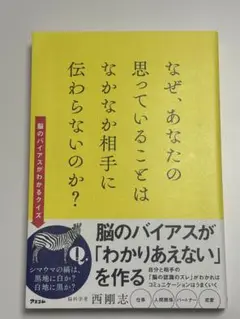 なぜ、あなたの
思っていることは
なかなか相手に
伝わらないのか?
脳のバイアスがわかるクイズ
Q.
シマウマの縞は、
黒地に白か?
白地に黒か?
アスコム
脳のバイアスが
「わかりあえない」
を作る
自分と相手の
「脳の認識のズレ」がわかれば
コミュニケーションはうまくいく
脳科学者 西剛志
仕事
人間関係
パートナー
家族